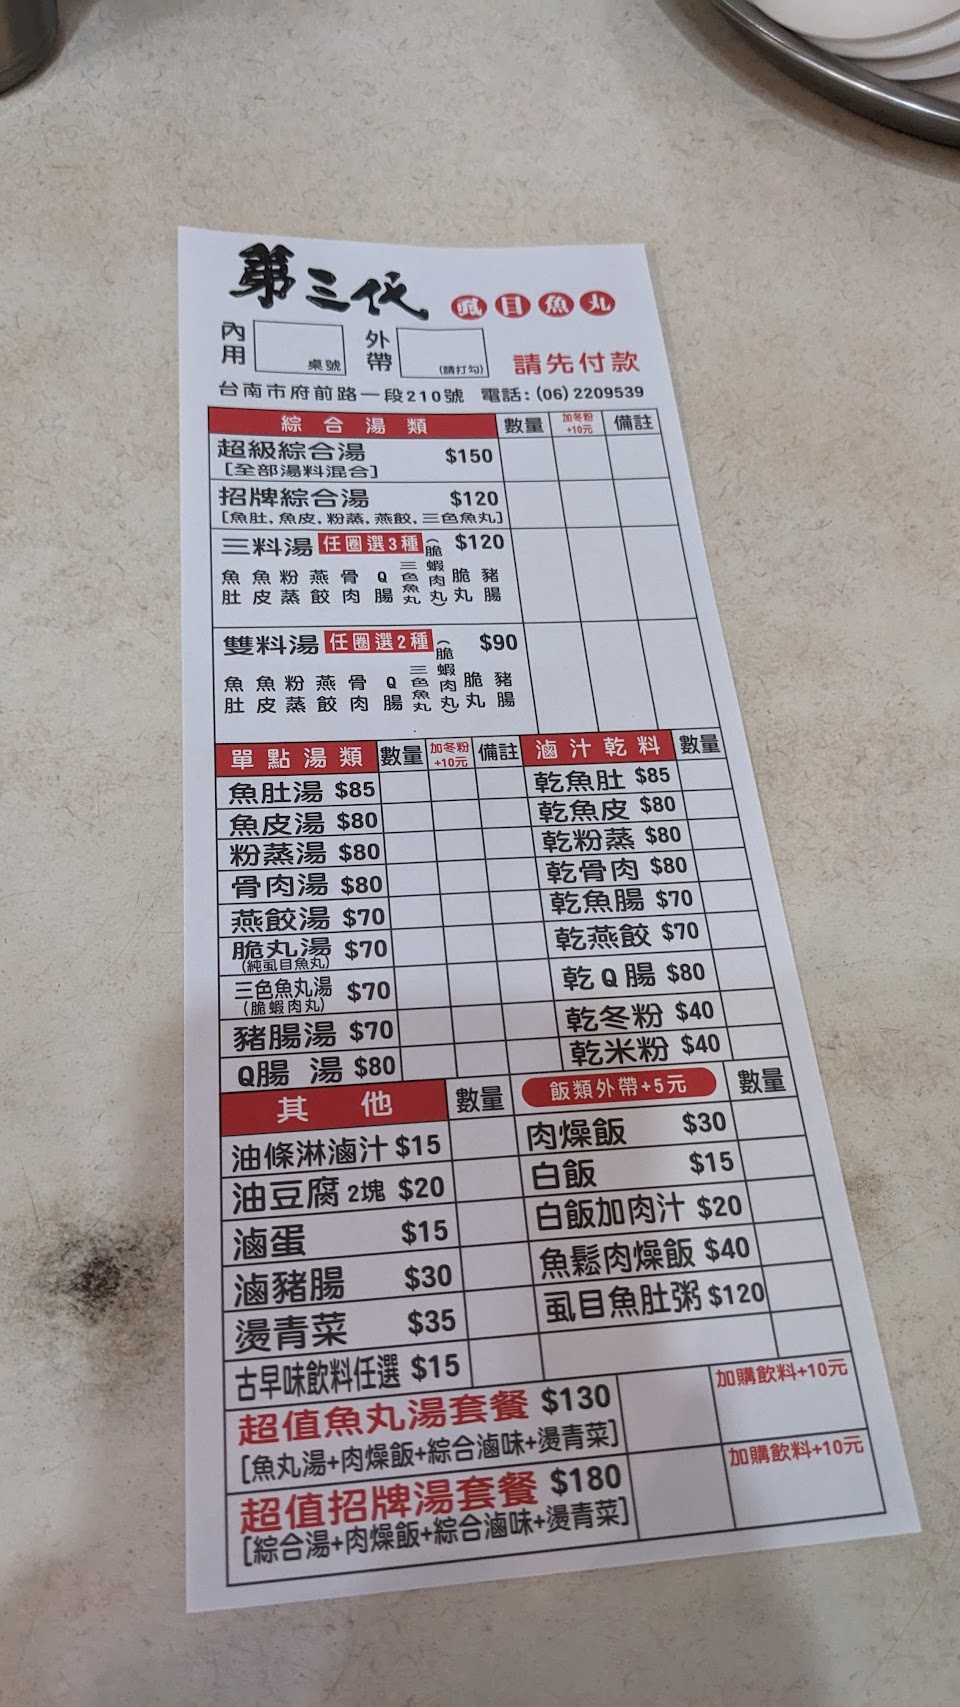 第三代 虱目魚丸
內用 桌號 外帶 (請打勾) 請先付款
台南市府前路一段210號 電話:(06)2209539
綜合湯類 數量 加冬粉+10元 備註
超級綜合湯 $150
[全部湯料混合]
招牌綜合湯 $120
[魚肚,魚皮,粉蒸,燕餃,三色魚丸]
三料湯 任圈選3種 $120
魚肚 魚皮 粉蒸 燕餃 骨肉 Q腸 三色魚丸(脆蝦肉丸) 脆丸 豬腸
雙料湯 任圈選2種 $90
魚肚 魚皮 粉蒸 燕餃 骨肉 Q腸 三色魚丸(脆蝦肉丸) 脆丸 豬腸
單點湯類 數量 加冬粉+10元 備註
魚肚湯 $85
魚皮湯 $80
粉蒸湯 $80
骨肉湯 $80
燕餃湯 $70
脆丸湯 $70
(純虱目魚丸)
三色魚丸湯 $70
(脆蝦肉丸)
豬腸湯 $70
Q腸 湯 $80
滷汁乾料 數量
乾魚肚 $85
乾魚皮 $80
乾粉蒸 $80
乾骨肉 $80
乾魚腸 $70
乾燕餃 $70
乾Q腸 $80
乾冬粉 $40
乾米粉 $40
其他 數量
油條淋滷汁 $15
油豆腐 2塊 $20
滷蛋 $15
滷豬腸 $30
燙青菜 $35
古早味飲料任選 $15
飯類外帶+5元 數量
肉燥飯 $30
白飯 $15
白飯加肉汁 $20
魚鬆肉燥飯 $40
虱目魚肚粥 $120
超值魚丸湯套餐 $130 加購飲料+10元
[魚丸湯+肉燥飯+綜合滷味+燙青菜]
超值招牌湯套餐 $180 加購飲料+10元
[綜合湯+肉燥飯+綜合滷味+燙青菜]